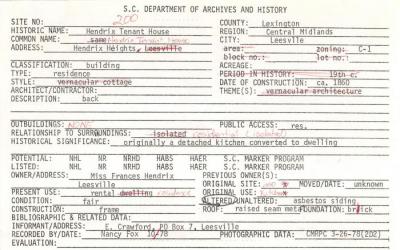 S.C. DEPARTMENT OF ARCHIVES AND HISTORY
SITE NO: 200 COUNTY: Lexington
HISTORIC NAME: Hendrix Tenant House REGION: Central Midlands
COMMON NAME: same Hendrix Tenant House CITY: Leesville
ADDRESS: Hendrix Heights, Leesville area: zoning: C-1
block no.: lot no.:
CLASSIFICATION: building ACREAGE:
TYPE: residence PERIOD IN HISTORY: 19th c.
STYLE: vernacular cottage DATE OF CONSTRUCTION: ca. 1860
ARCHITECT/CONTRACTOR: THEME(S): vernacular architecture
DESCRIPTION: back
OUTBUILDINGS: NONE PUBLIC ACCESS: res.
RELATIONSHIP TO SURROUNDINGS: isolated residential (isolated)
HISTORICAL SIGNIFICANCE: originally a detached kitchen converted to dwelling
POTENTIAL: NHL NR NRHD HABS HAER S.C. MARKER PROGRAM
LISTED: NHL NR NRHD HABS HAER S.C. MARKER PROGRAM
OWNER/ADDRESS: Miss Frances Hendrix PREVIOUS OWNER(S):
Leesville ORIGINAL SITE: MOVED/DATE: unknown
PRESENT USE: rental dwelling residence ORIGINAL USE:
CONDITION: fair ALTERED/UNALTERED: asbestos siding
CONSTRUCTION: frame ROOF: raised seam metal FOUNDATION: brick
BIBLIOGRAPHIC & RELATED DATA:
INFORMANT/ADDRESS: E. Crawford, PO Box 7, Leesville
RECORDED BY/DATE: Nancy Fox 10/78 PHOTOGRAPHIC DATA: CMRPC 3-26-78(2D2)
EVALUATION: